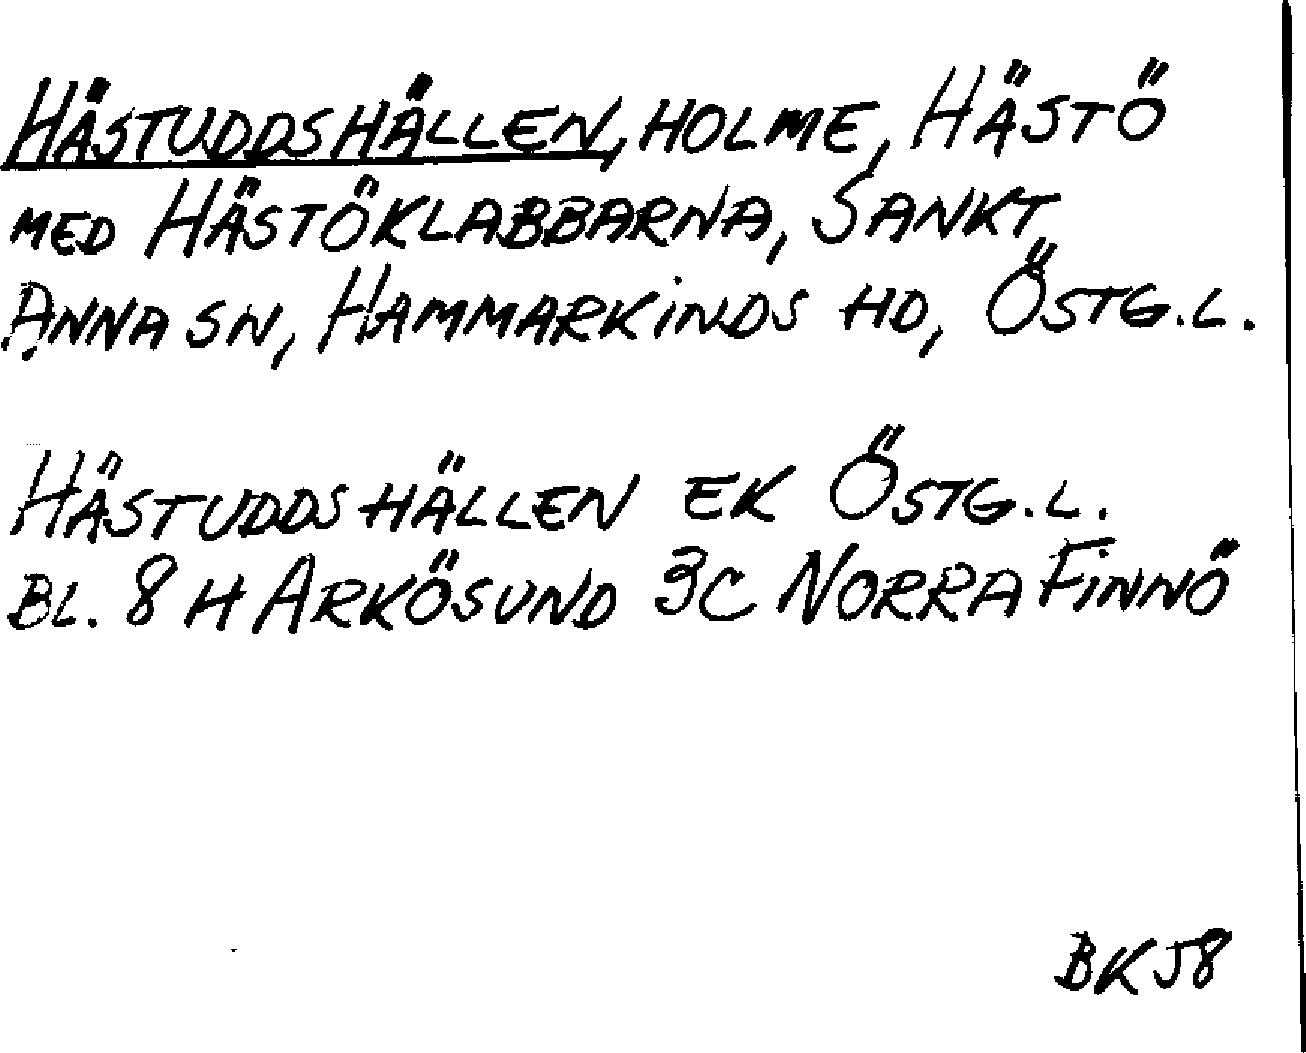 HÄSTUDDSHÄLLEN, HOLME, HÄSTÖ
MED HÄSTÖKLABBARNA, SANKT
ANNA SN, HAMMARKINDS HD, ÖSTG.L.
HÄSTUDDSHÄLLEN EK ÖSTG.L.
BL. 8 H ARKÖSUND 3C NORRA FINNÖ
BKJ8